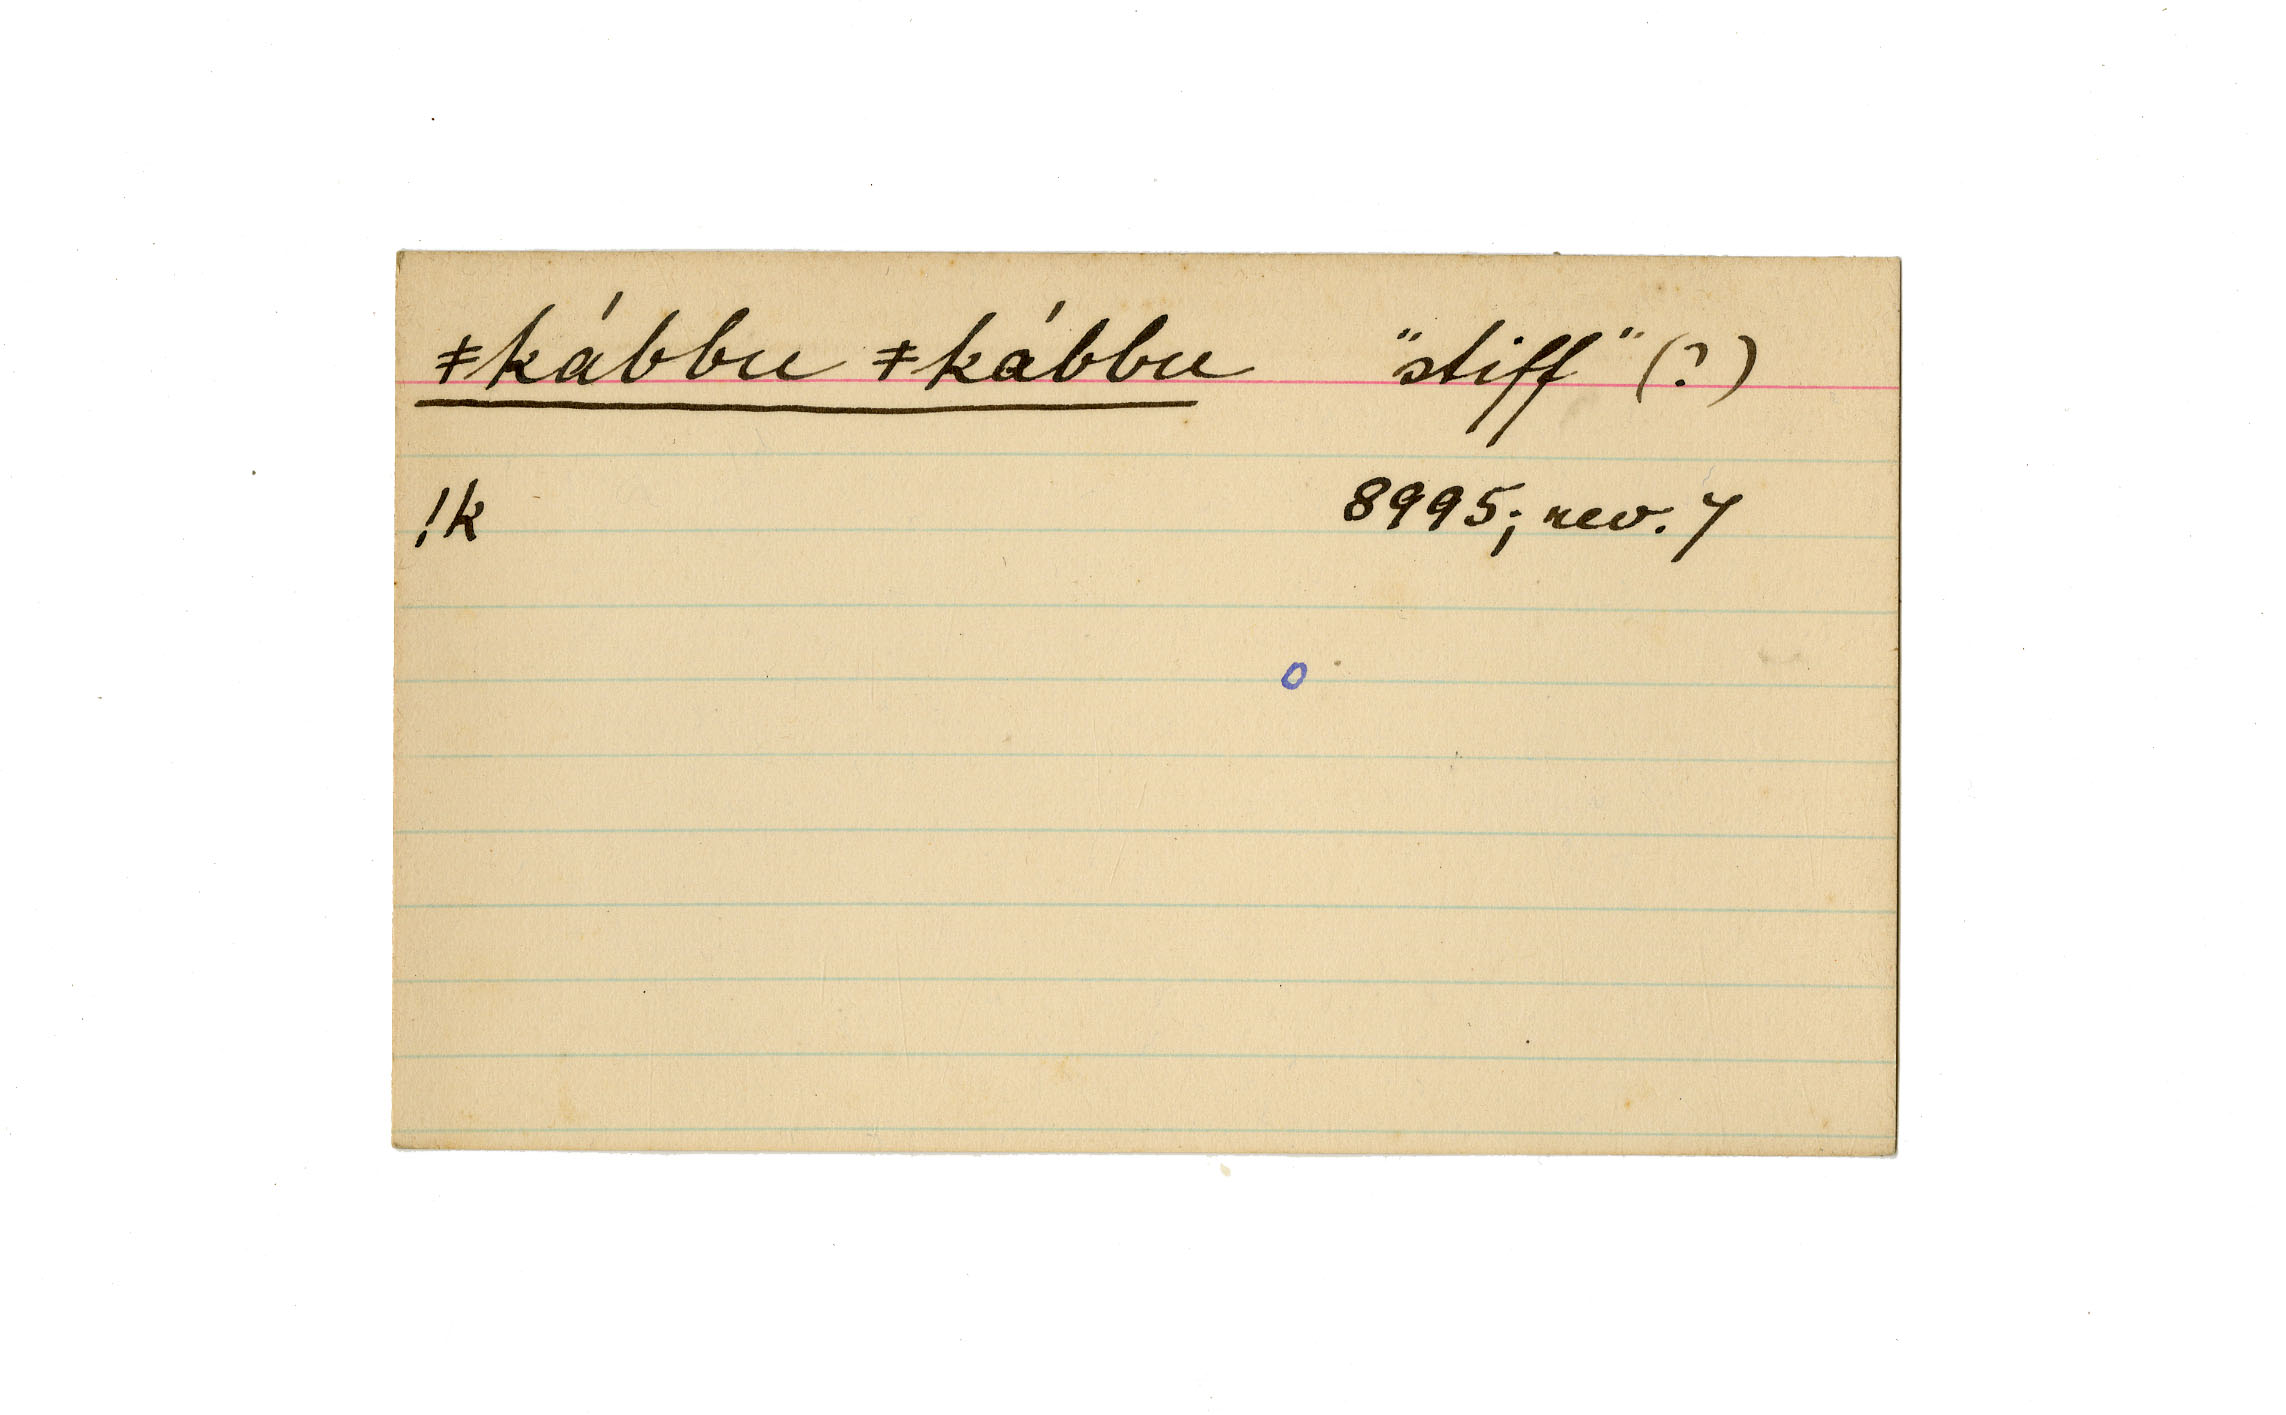 ǂkábbu ǂkábbu "stiff" (?)
!k 8995; rev. 7
o